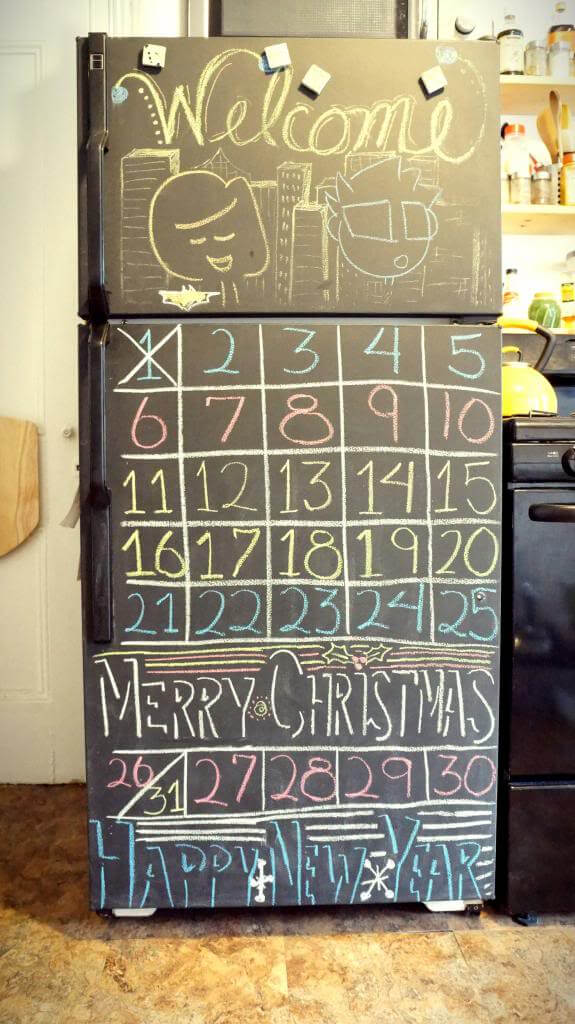 Welcome
1 2 3 4 5
6 7 8 9 10
11 12 13 14 15
16 17 18 19 20
21 22 23 24 25
MERRY CHRISTMAS
26/31 27 28 29 30
HAPPY NEW YEAR